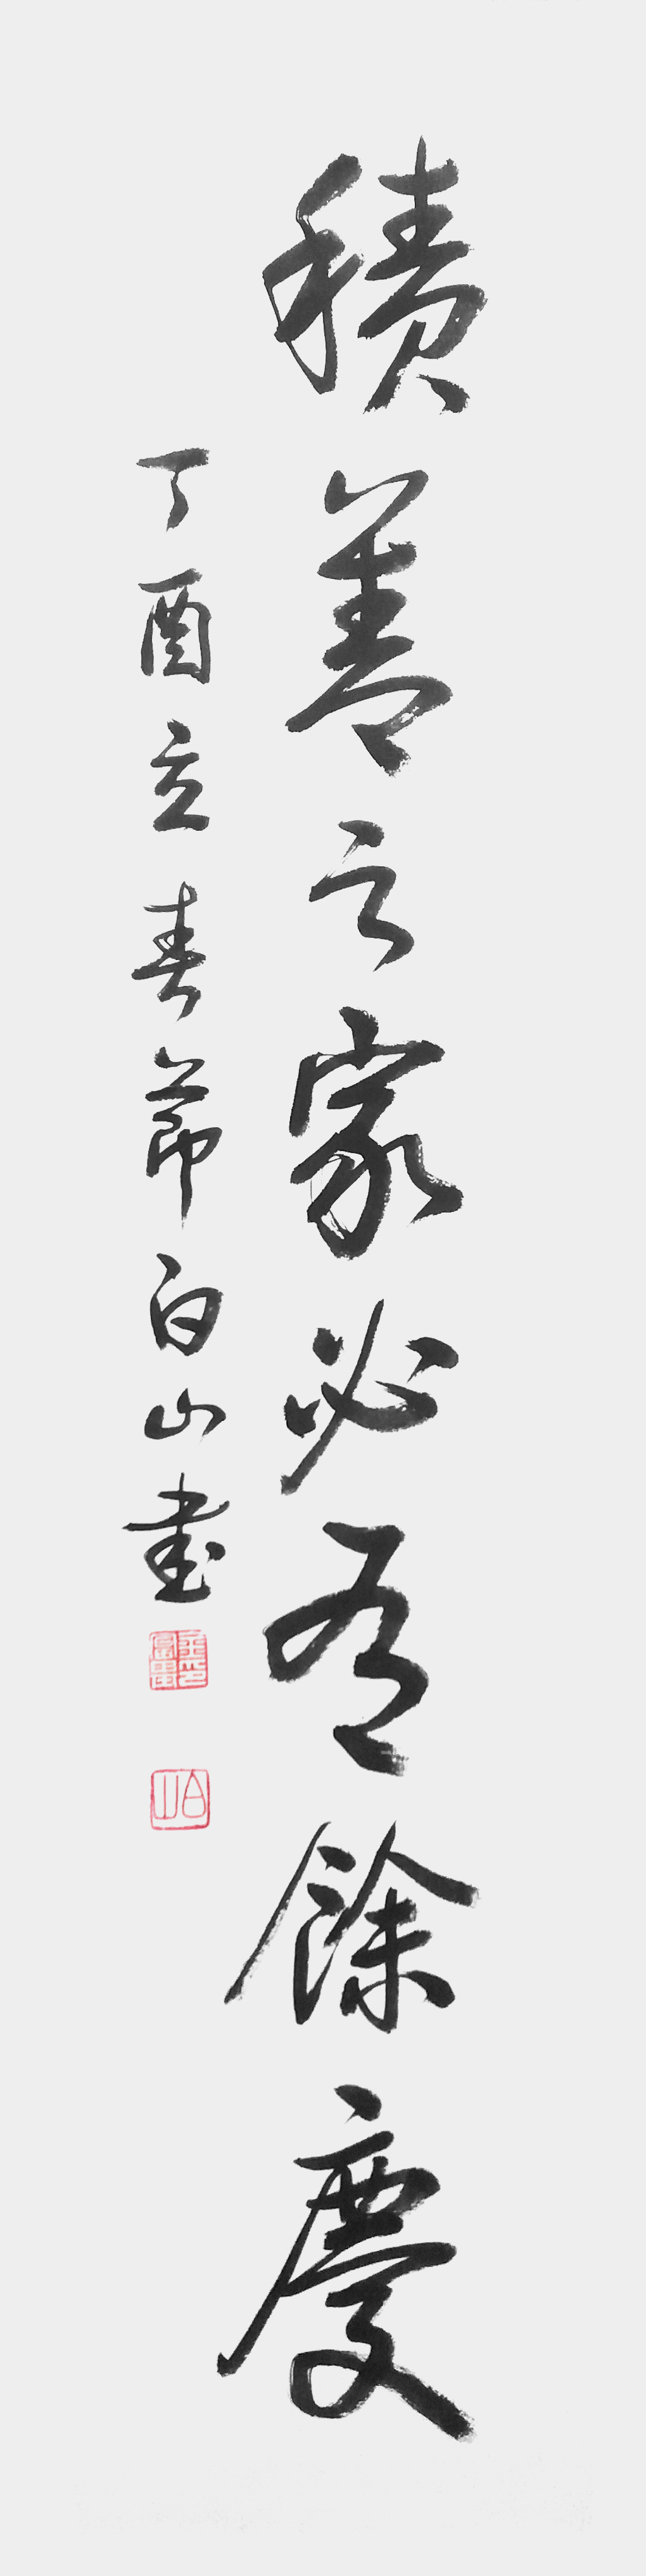 積善之家必有餘慶
丁酉立春節白山書
白山